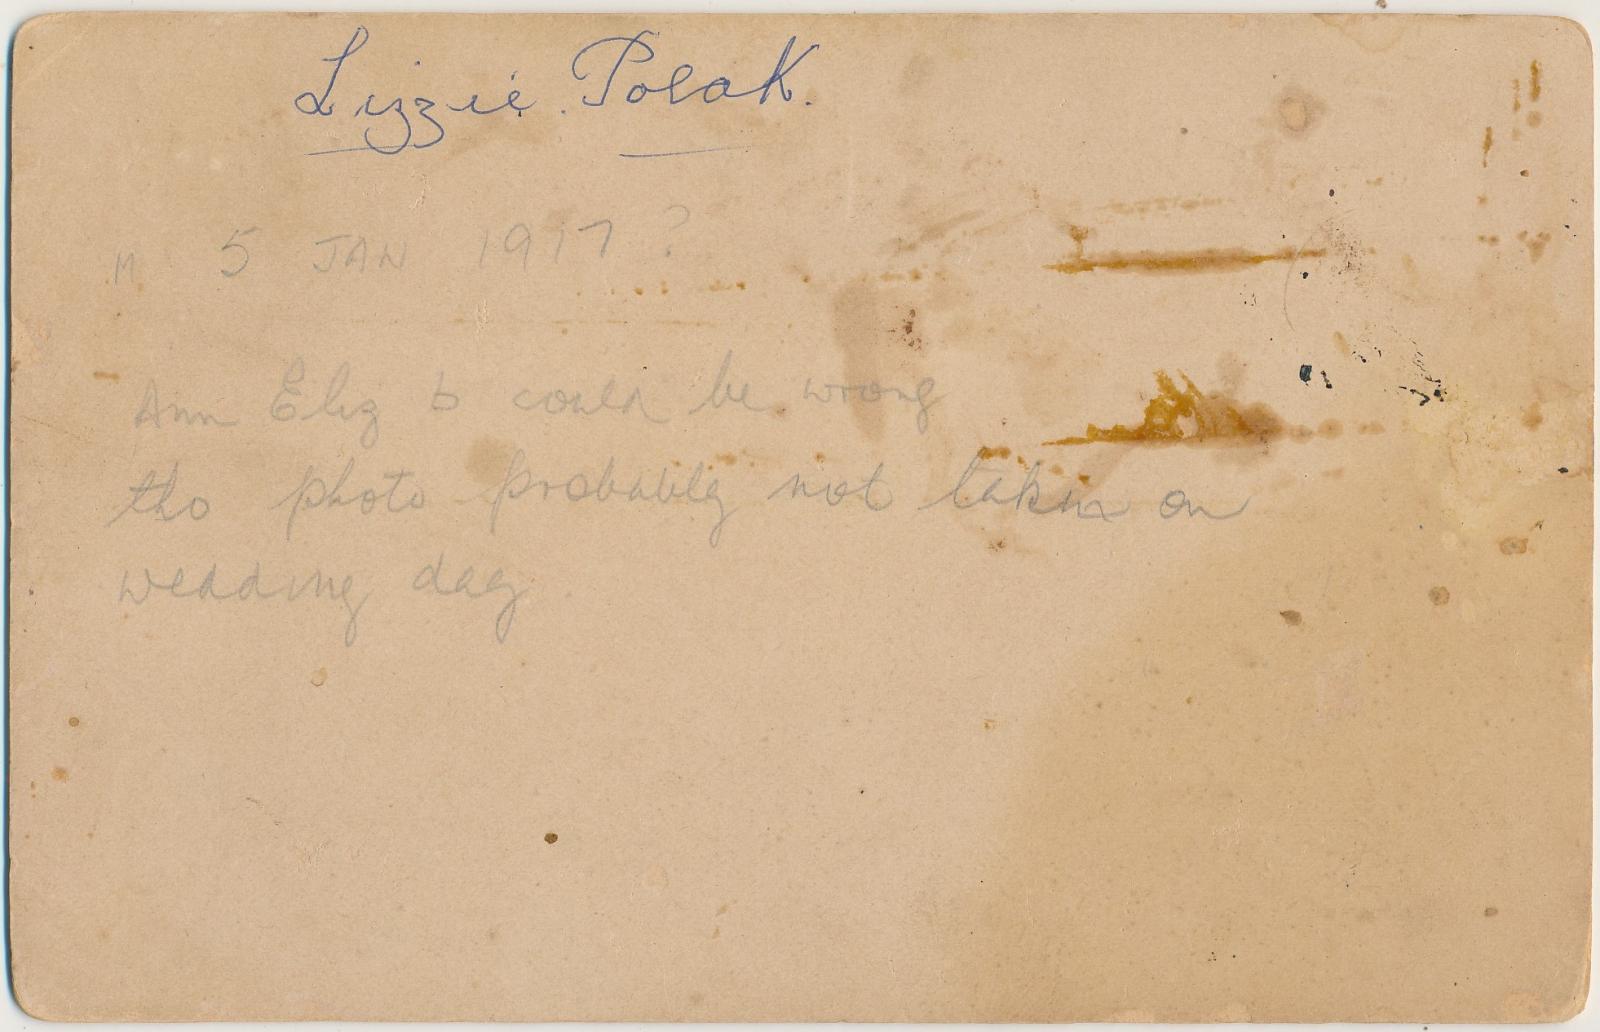 Lizzie. Polak.
M 5 JAN 1917 ?
Ann Eliz b could be wrong
tho photo probably not taken on
wedding day